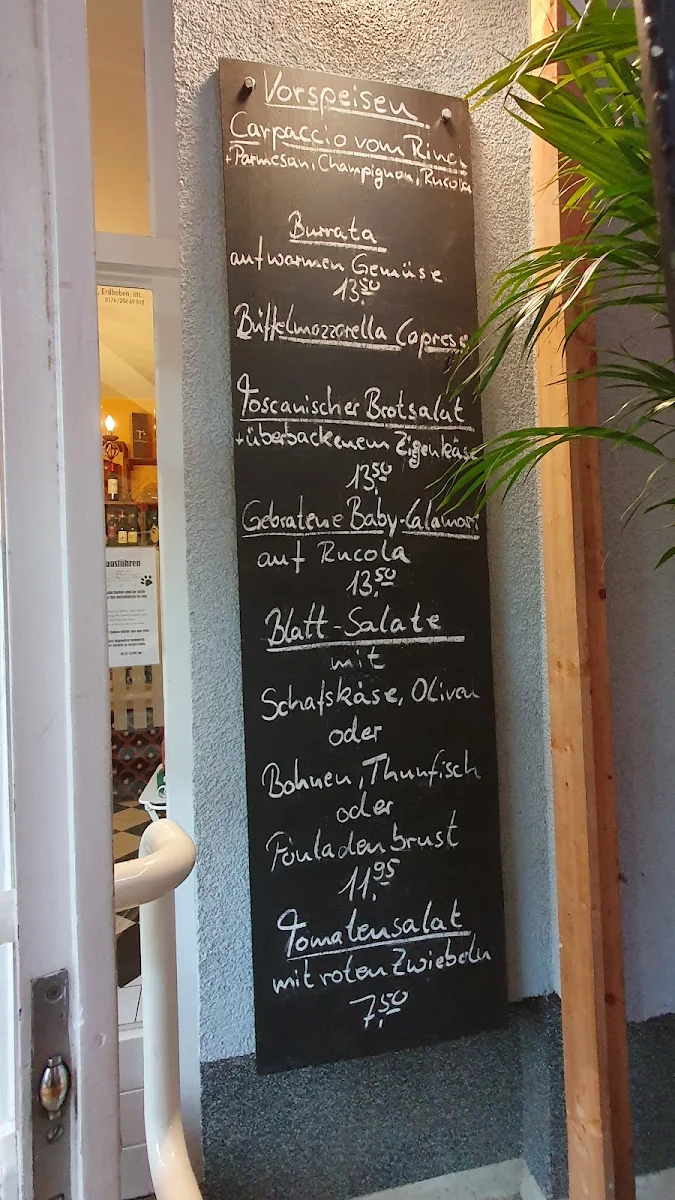 Vorspeisen
Carpaccio vom Rind
+Parmesan, Champignon, Rucola
Burrata
auf warmen Gemüse
13,50
Büffelmozzarella Caprese
Toscanischer Brotsalat
+überbackenem Zigenkäse
13,50
Gebratene Baby-Calamari
auf Rucola
13,50
Blatt-Salate
mit
Schafskäse, Oliven
oder
Bohnen, Thunfisch
oder
Pouladenbrust
11,95
Tomatensalat
mit roten Zwiebeln
7,50
Erdbeben, etc.
ausführen